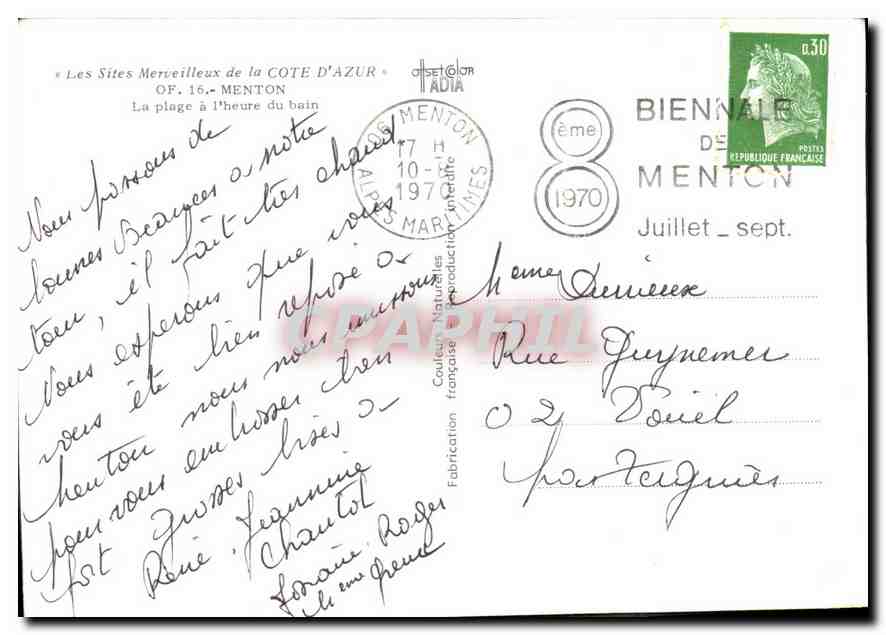 « Les Sites Merveilleux de la COTE D'AZUR »
OF. 16.- MENTON
La plage à l'heure du bain
OffsetColor
IADIA
06 MENTON
17 H
10-8
1970
ALPES MARITIMES
8
ème
1970
BIENNALE
DE
MENTON
Juillet _ sept.
0,30
POSTES
REPUBLIQUE FRANÇAISE
Nous passons de
bonnes vacances a notre
tour, il fait très chaud.
Nous esperons que vous
vous été bien reposé a
Menton nous nous unissons
pour vous embrasser bien
fort Grosses bises a
René. Jeannine
Chantal
Josiane. Roger
Meme
Couleurs Naturelles
Fabrication française - Reproduction interdite
Meme Durieux
Rue Guynemer
02 Vouël
par Tergnier
CPAPHIL